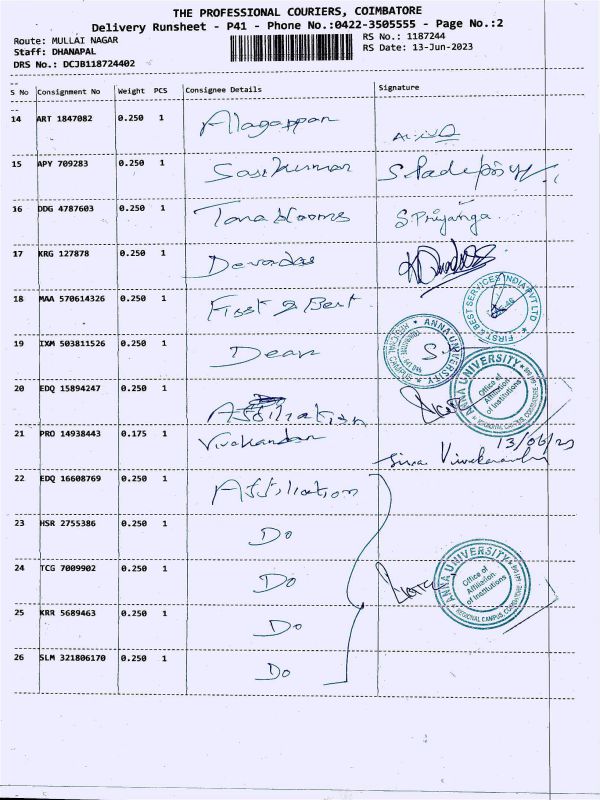 THE PROFESSIONAL COURIERS, COIMBATORE
Delivery Runsheet - P41 - Phone No.:0422-3505555 - Page No.:2
Route: MULLAI NAGAR
RS No.: 1187244
Staff: DHANAPAL
RS Date: 13-Jun-2023
DRS No.: DCJB118724402
S No Consignment No Weight PCS Consignee Details Signature
14 ART 1847082 0.250 1 Alagappan
15 APY 709283 0.250 1 Sasikumar
16 DDG 4787603 0.250 1 Tana blooms S Priyanga
17 KRG 127878 0.250 1 Devadas
18 MAA 570614326 0.250 1 First & Best FIRST & BEST SERVICES INDIA PVT LTD
19 IXM 503811526 0.250 1 Dean S ANNA UNIVERSITY REGIONAL CAMPUS
20 EDQ 15894247 0.250 1 Affiliation ANNA UNIVERSITY Office of Affiliation of Institutions REGIONAL CAMPUS, COIMBATORE
21 PRO 14938443 0.175 1 Vivekandan 13/06/23
Siva Vivekanandan
22 EDQ 16608769 0.250 1 Affiliation
23 HSR 2755386 0.250 1 Do
24 TCG 7009902 0.250 1 Do ANNA UNIVERSITY Office of Affiliation of Institutions REGIONAL CAMPUS, COIMBATORE
25 KRR 5689463 0.250 1 Do
26 SLM 321806170 0.250 1 Do